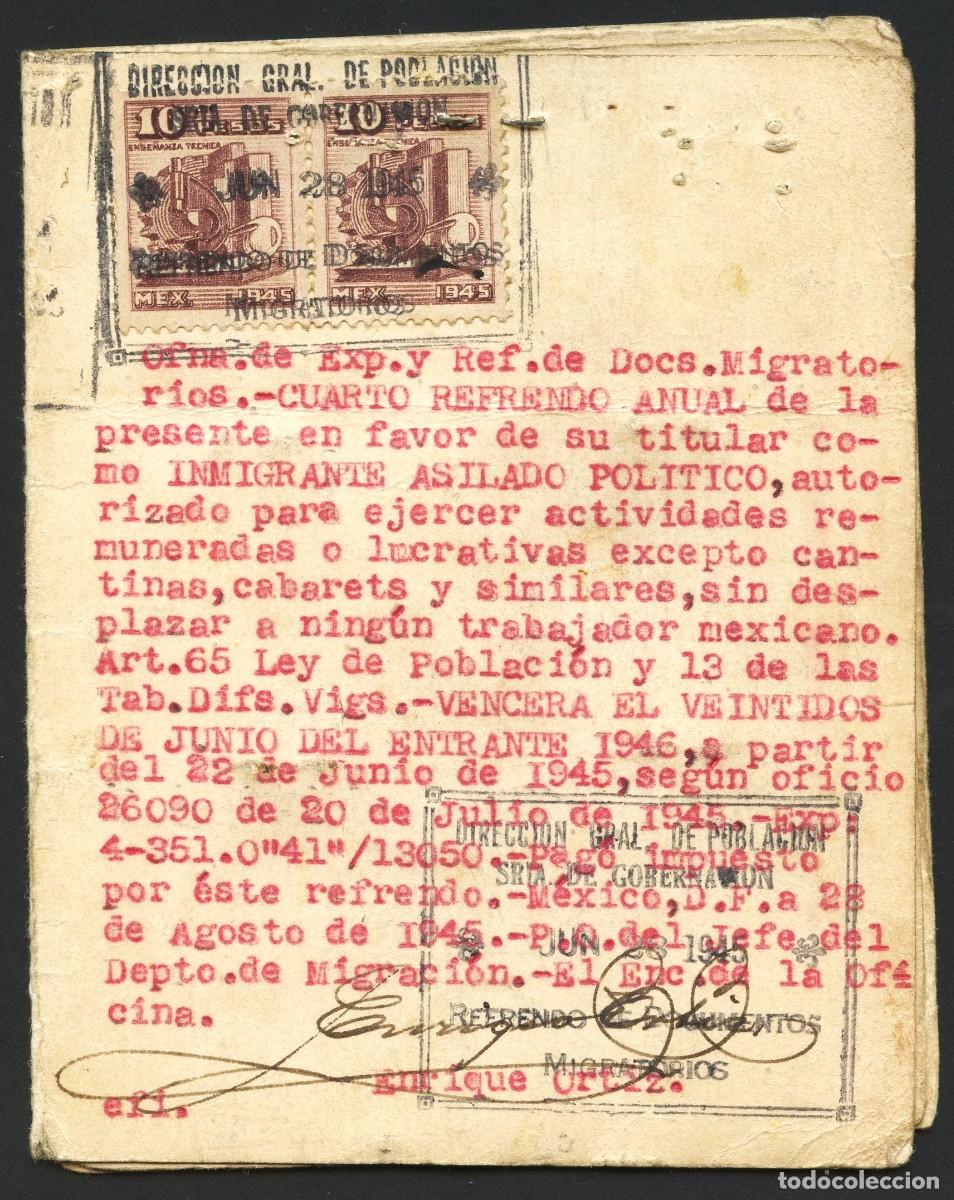 DIRECCION GRAL. DE POBLACION
SRIA. DE GOBERNACION
10 PESOS 10 PESOS
ENSEÑANZA TECNICA ENSEÑANZA TECNICA
JUN 28 1945
REFRENDO DE DOCUMENTOS
MEX. 1945 MEX. 1945
MIGRATORIOS
Ofna.de Exp.y Ref.de Docs.Migrato-
rios.-CUARTO REFRENDO ANUAL de la
presente en favor de su titular co-
mo INMIGRANTE ASILADO POLITICO,auto-
rizado para ejercer actividades re-
muneradas o lucrativas excepto can-
tinas,cabarets y similares,sin des-
plazar a ningún trabajador mexicano.
Art.65 Ley de Población y 13 de las
Tab.Difs.Vigs.-VENCERA EL VEINTIDOS
DE JUNIO DEL ENTRANTE 1946,a partir
del 22 de Junio de 1945,según oficio
26090 de 20 de Julio de 1945.-Exp.
4-351.0"41"/13050.-Pagó impuesto
por éste refrendo.-México,D.F.a 28
de Agosto de 1945.-P.O.del Jefe del
Depto.de Migración.-El Enc.de la Ofi
cina.
Enrique Ortiz.
efi.
DIRECCION GRAL. DE POBLACION
SRIA. DE GOBERNACION
JUN 28 1945
REFRENDO DE DOCUMENTOS
MIGRATORIOS
todocoleccion